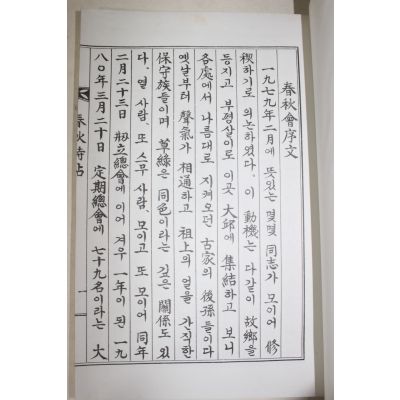 春秋會序文
一九七九年二月에 뜻있는 몇몇 同志가 모이어 修
稧하기로 의논하였다. 이 動機는 다같이 故鄕을
등지고 부평살이로 이곳 大邱에 集結하고 보니
各處에서 나름대로 지켜오던 古家의 後孫들이다
옛날부터 聲氣가 相通하고 祖上의 얼을 간직한
保守族들이며 草綠은 同色이라는 깊은 關係도 있
다. 열 사람, 또 스무 사람, 모이고 또 모이어 同年
二月二十三日 刱立總會에 이어 겨우 一年이 된 一九
八○年三月二十日 定期總會에 七十九名이라는 大
春秋詩帖
一